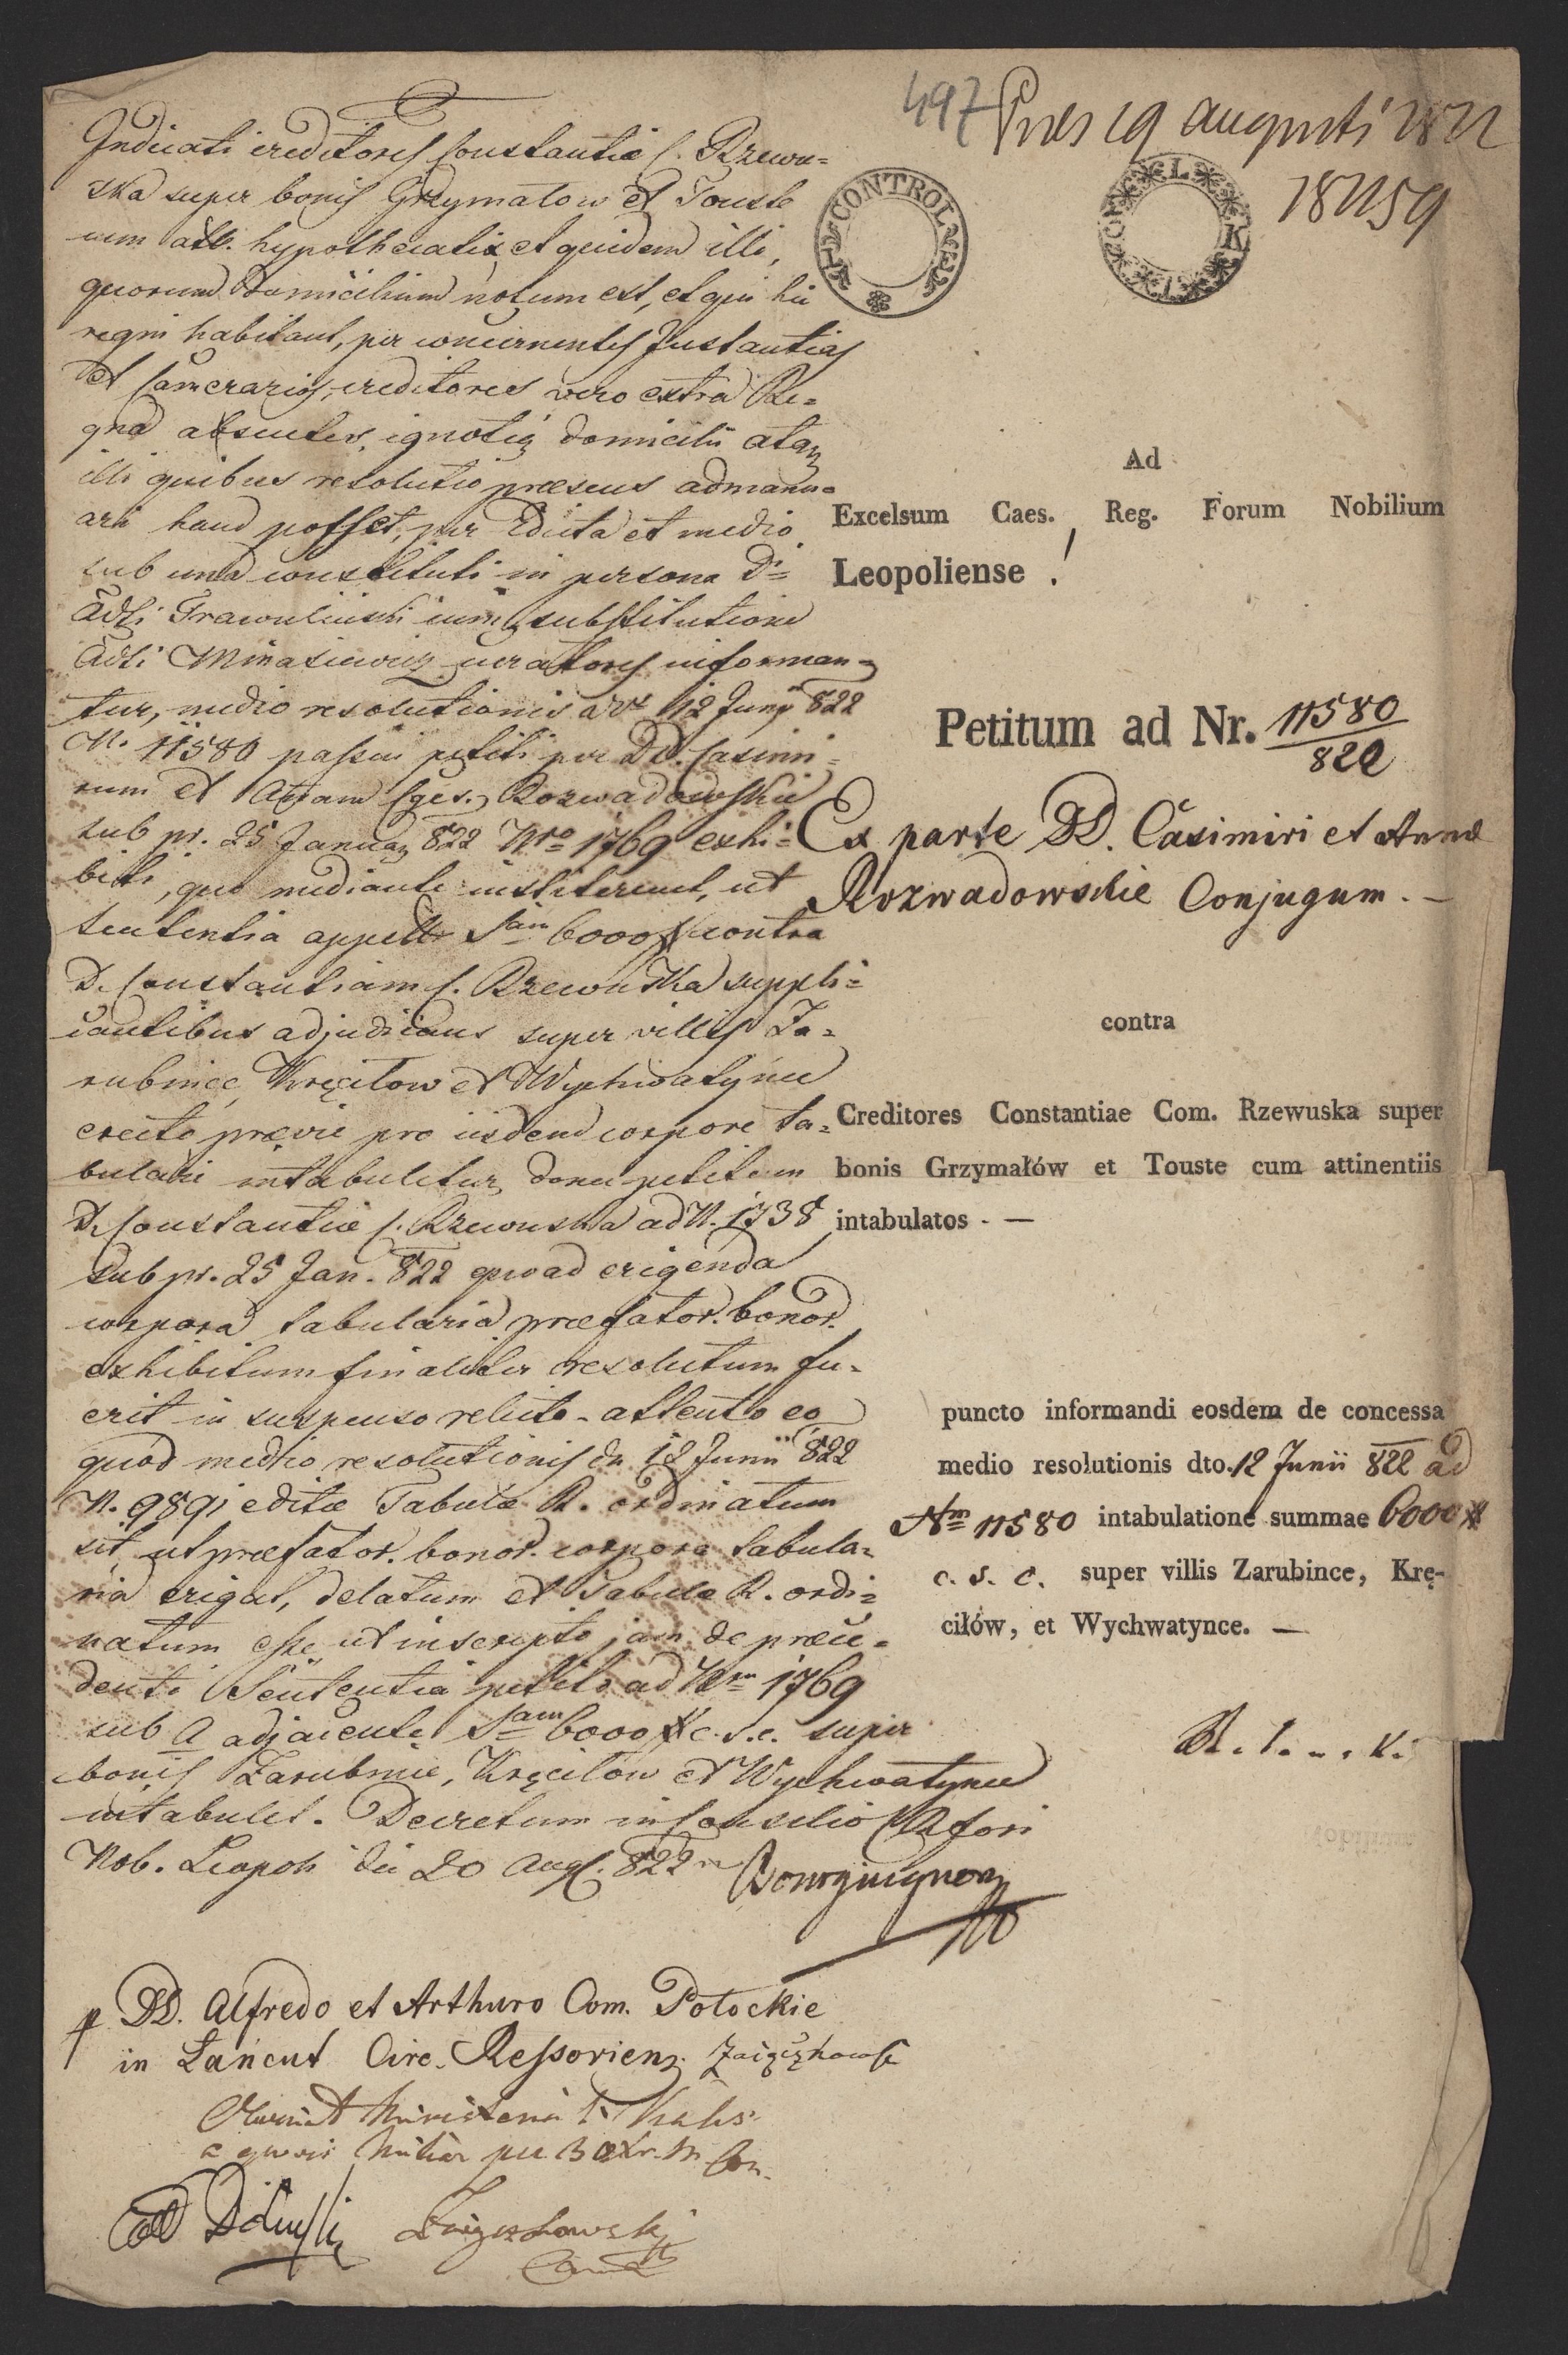 497
Pres 19 augusti 1822
18859
CONTROL
Ad
Excelsum Caes. Reg. Forum Nobilium
Leopoliense !
Petitum ad Nr. 11580/822
Ex parte DD. Casimiri et Annæ
Rozwadowskie Conjugum. —
contra
Creditores Constantiae Com. Rzewuska super
bonis Grzymałów et Touste cum attinentiis
intabulatos. —
puncto informandi eosdem de concessa
medio resolutionis dto. 12 Junii 822 ad
Nm 11580 intabulatione summae 6000 #
c. s. c. super villis Zarubince, Krę-
ciłów, et Wychwatynce. —
Indicati creditores Constantiæ C. Rzewu=
ska super bonis Grzymałow et Touste
cum att. hypothecatis, et quidem illi,
quorum domicilium notum est, et qui hic
regni habitant, per concernentes Instantias
et Camerarios, creditores vero extra Re=
gna absentes, ignoti domicilii atq
illi quibus resolutio præsens admanu=
ari haud posset, per Edicta et medio
sub una constituti in persona Di
Adti cum substitutione
Adti Minasiewicz curatores informan=
tur, medio resolutionis ddt 12 Junij 822
N. 11580 passui petiti per DD. Casimi=
rum et Annam Cges. Rozwadowskie
sub pr. 25 Januar 822 Nro 1769 exhi=
biti, quo mediante institerunt, ut
sententia Sam 6000 # contra
D. Constantiam C. Rzewuska suppli=
cantibus adjudicans super villis Za=
rubince, Kręciłow et Wychwatynce
erecto prævie pro iisdem corpore ta=
bulari intabuletur, donec petitum
D. Constantiæ C. Rzewuska ad N. 1738
sub pr. 25 Jan. 822 quoad erigenda
corpora tabularia præfator. bonor.
exhibitum finaliter resolutum fu=
erit in suspenso relicto - attento eo
quod medio resolutionis de 12 Junii 822
N. 9891 editæ Tabulæ R. ordinatum
sit, ut præfator. bonor. corpora tabula=
ria erigat, delatum et Tabulæ R. ordi=
natum esse, ut inscripto jam de præce=
denti Sententia petito ad Nrm 1769
sub A adjacente Sam 6000 # c. s. c. super
bonis Zarubince, Kręciłow et Wychwatynce
intabulet. Decretum in Consilio C R fori
Nob. Leopoli die 20 Aug. 822
Bourguignon
p DD. Alfredo et Arthuro Com. Potockie
in Łańcut Circ. Ressoviens.